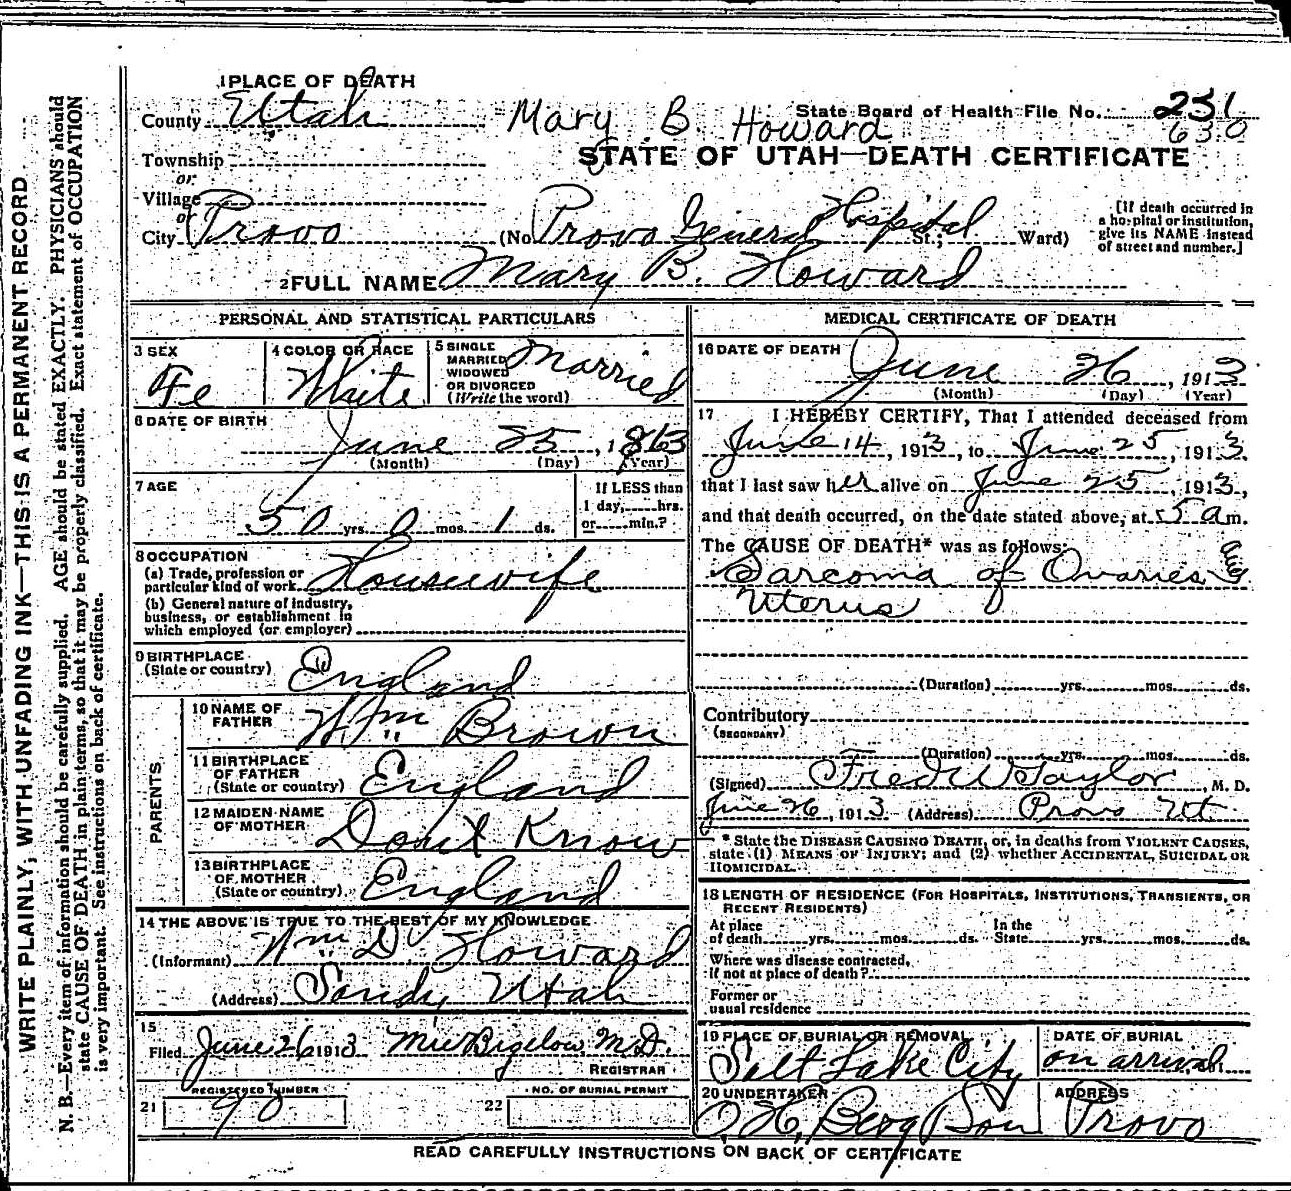 WRITE PLAINLY, WITH UNFADING INK—THIS IS A PERMANENT RECORD.
N. B.—Every item of information should be carefully supplied. AGE should be stated EXACTLY. PHYSICIANS should
state CAUSE OF DEATH in plain terms, so that it may be properly classified. Exact statement of OCCUPATION
is very important. See instructions on back of certificate.
1 PLACE OF DEATH
County Utah
Mary B. Howard
State Board of Health File No. 251
630
STATE OF UTAH—DEATH CERTIFICATE
Township
or
Village
or
City Provo (No. Provo General Hospital St.; Ward)
[If death occurred in
a hospital or institution,
give its NAME instead
of street and number.]
2 FULL NAME Mary B. Howard
PERSONAL AND STATISTICAL PARTICULARS
3 SEX
Fe
4 COLOR OR RACE
White
5 SINGLE
MARRIED
WIDOWED
OR DIVORCED
(Write the word)
Married
6 DATE OF BIRTH
June 25, 1863
(Month) (Day) (Year)
7 AGE
50 yrs. 0 mos. 1 ds.
If LESS than
1 day, hrs.
or min.?
8 OCCUPATION
(a) Trade, profession or
particular kind of work Housewife
(b) General nature of industry,
business, or establishment in
which employed (or employer)
9 BIRTHPLACE
(State or country) England
PARENTS
10 NAME OF
FATHER Wm Brown
11 BIRTHPLACE
OF FATHER
(State or country) England
12 MAIDEN NAME
OF MOTHER Don't Know
13 BIRTHPLACE
OF MOTHER
(State or country) England
14 THE ABOVE IS TRUE TO THE BEST OF MY KNOWLEDGE
(Informant) Wm D. Howard
(Address) Sandy Utah
15
Filed June 26 1913 Bigelow M.D.
REGISTRAR
REGISTERED NUMBER
21
NO. OF BURIAL PERMIT
22
MEDICAL CERTIFICATE OF DEATH
16 DATE OF DEATH
June 26, 1913
(Month) (Day) (Year)
17 I HEREBY CERTIFY, That I attended deceased from
June 14, 1913, to June 25, 1913
that I last saw her alive on June 25, 1913,
and that death occurred, on the date stated above, at 5 a m.
The CAUSE OF DEATH* was as follows:
Sarcoma of Ovaries and
Uterus
(Duration) yrs. mos. ds.
Contributory
(SECONDARY)
(Duration) yrs. mos. ds.
(Signed) Fred W Taylor, M. D.
June 26, 1913 (Address) Provo Ut
* State the DISEASE CAUSING DEATH, or, in deaths from VIOLENT CAUSES,
state (1) MEANS OF INJURY; and (2) whether ACCIDENTAL, SUICIDAL OR
HOMICIDAL.
18 LENGTH OF RESIDENCE (FOR HOSPITALS, INSTITUTIONS, TRANSIENTS, OR
RECENT RESIDENTS)
At place
of death yrs. mos. ds.
In the
State yrs. mos. ds.
Where was disease contracted,
if not at place of death?
Former or
usual residence
19 PLACE OF BURIAL OR REMOVAL
Salt Lake City
DATE OF BURIAL
on arrival
20 UNDERTAKER
O. H. Berg Son
ADDRESS
Provo
READ CAREFULLY INSTRUCTIONS ON BACK OF CERTIFICATE